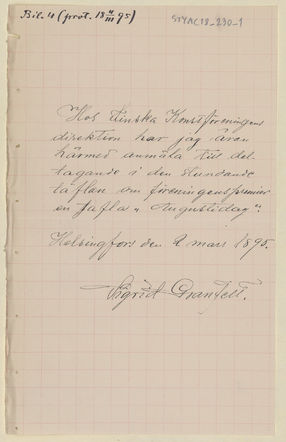 Bil. 4 (prot. 18 4/III 95)
STYAC18_230_1
Hos Finska Konstföreningens
direktion har jag äran
härmed anmäla till del-
tagande i den stundande
täflan om föreningens premier
en tafla „Augustidag“.
Helsingfors den 2 mars 1895.
Sigrid Granfelt.